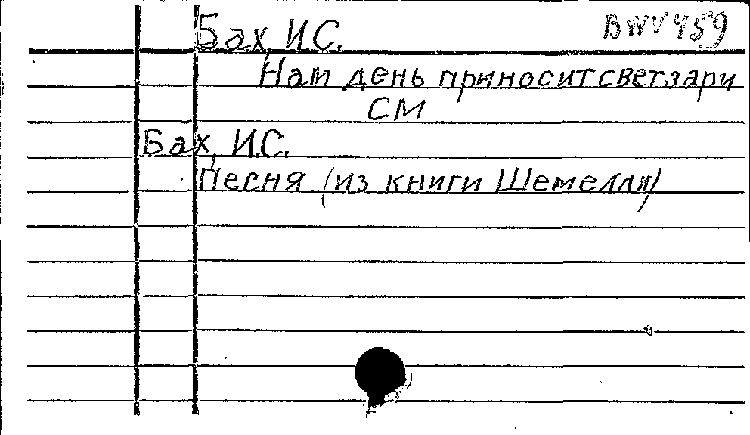 Бах, И.С. BWV 459
Нам день приносит свет зари
СМ
Бах, И.С.
Песня (из книги Шемелли)